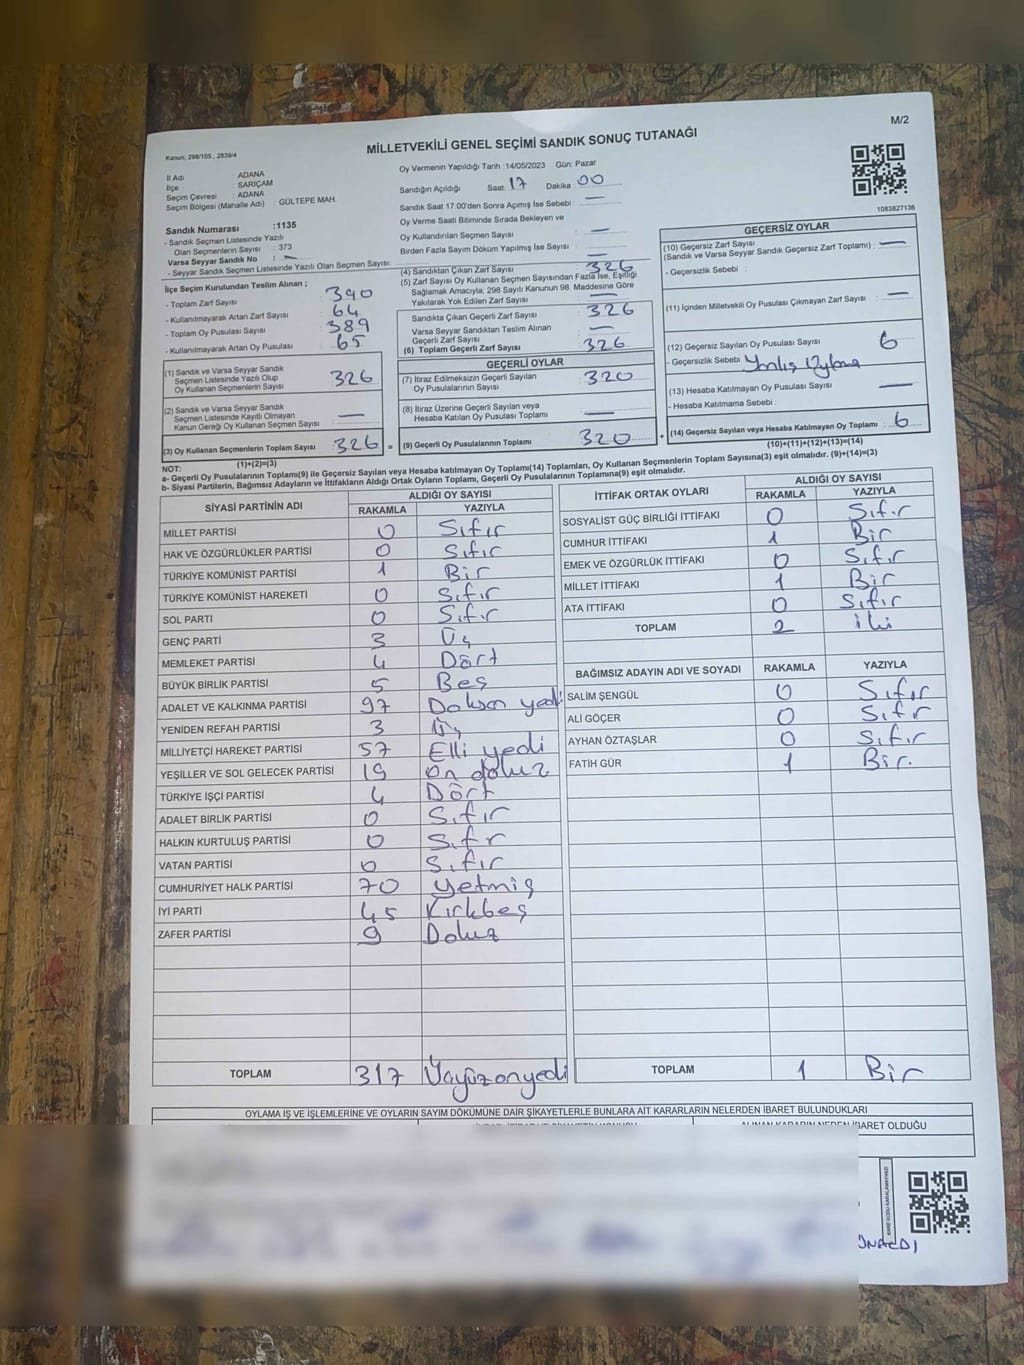 M/2
MİLLETVEKİLİ GENEL SEÇİMİ SANDIK SONUÇ TUTANAĞI
Kanun: 298/105 , 2839/4
İl Adı : ADANA
İlçe : SARIÇAM
Seçim Çevresi : ADANA
Seçim Bölgesi (Mahalle Adı) : GÜLTEPE MAH.
Sandık Numarası :1135
- Sandık Seçmen Listesinde Yazılı
Olan Seçmenlerin Sayısı : 373
Varsa Seyyar Sandık No : —
- Seyyar Sandık Seçmen Listesinde Yazılı Olan Seçmen Sayısı:
İlçe Seçim Kurulundan Teslim Alınan ;
- Toplam Zarf Sayısı 390
- Kullanılmayarak Artan Zarf Sayısı 64
- Toplam Oy Pusulası Sayısı 389
- Kullanılmayarak Artan Oy Pusulası 65
(1) Sandık ve Varsa Seyyar Sandık
Seçmen Listesinde Yazılı Olup
Oy Kullanan Seçmenlerin Sayısı 326
(2) Sandık ve Varsa Seyyar Sandık
Seçmen Listesinde Kayıtlı Olmayan
Kanun Gereği Oy Kullanan Seçmen Sayısı —
(3) Oy Kullanan Seçmenlerin Toplam Sayısı 326 =
(1)+(2)=(3)
Oy Vermenin Yapıldığı Tarih :14/05/2023 Gün: Pazar
Sandığın Açıldığı Saat 17 Dakika 00
Sandık Saat 17.00'den Sonra Açılmış İse Sebebi : —
Oy Verme Saati Bitiminde Sırada Bekleyen ve
Oy Kullandırılan Seçmen Sayısı —
Birden Fazla Sayım Döküm Yapılmış İse Sayısı : —
(4) Sandıktan Çıkan Zarf Sayısı 326
(5) Zarf Sayısı Oy Kullanan Seçmen Sayısından Fazla İse, Eşitliği
Sağlamak Amacıyla; 298 Sayılı Kanunun 98. Maddesine Göre
Yakılarak Yok Edilen Zarf Sayısı —
Sandıkta Çıkan Geçerli Zarf Sayısı : 326
Varsa Seyyar Sandıktan Teslim Alınan
Geçerli Zarf Sayısı —
(6) Toplam Geçerli Zarf Sayısı 326
GEÇERLİ OYLAR
(7) İtiraz Edilmeksizin Geçerli Sayılan
Oy Pusulalarının Sayısı : 320
(8) İtiraz Üzerine Geçerli Sayılan veya
Hesaba Katılan Oy Pusulası Toplamı —
(9) Geçerli Oy Pusulalarının Toplamı 320 +
1083827136
GEÇERSİZ OYLAR
(10) Geçersiz Zarf Sayısı
(Sandık ve Varsa Seyyar Sandık Geçersiz Zarf Toplamı) : —
- Geçersizlik Sebebi :
(11) İçinden Milletvekili Oy Pusulası Çıkmayan Zarf Sayısı : —
(12) Geçersiz Sayılan Oy Pusulası Sayısı 6
- Geçersizlik Sebebi Yanlış Oylama
(13) Hesaba Katılmayan Oy Pusulası Sayısı —
- Hesaba Katılmama Sebebi :
(14) Geçersiz Sayılan veya Hesaba Katılmayan Oy Toplamı : 6
(10)+(11)+(12)+(13)=(14)
NOT:
a- Geçerli Oy Pusulalarının Toplamı(9) ile Geçersiz Sayılan veya Hesaba katılmayan Oy Toplamı(14) Toplamları, Oy Kullanan Seçmenlerin Toplam Sayısına(3) eşit olmalıdır. (9)+(14)=(3)
b- Siyasi Partilerin, Bağımsız Adayların ve İttifakların Aldığı Ortak Oyların Toplamı, Geçerli Oy Pusulalarının Toplamına(9) eşit olmalıdır.
SİYASİ PARTİNİN ADI ALDIĞI OY SAYISI
RAKAMLA YAZIYLA
MİLLET PARTİSİ 0 Sıfır
HAK VE ÖZGÜRLÜKLER PARTİSİ 0 Sıfır
TÜRKİYE KOMÜNİST PARTİSİ 1 Bir
TÜRKİYE KOMÜNİST HAREKETİ 0 Sıfır
SOL PARTİ 0 Sıfır
GENÇ PARTİ 3 Üç
MEMLEKET PARTİSİ 4 Dört
BÜYÜK BİRLİK PARTİSİ 5 Beş
ADALET VE KALKINMA PARTİSİ 97 Doksan yedi
YENİDEN REFAH PARTİSİ 3 Üç
MİLLİYETÇİ HAREKET PARTİSİ 57 Elli yedi
YEŞİLLER VE SOL GELECEK PARTİSİ 19 On dokuz
TÜRKİYE İŞÇİ PARTİSİ 4 Dört
ADALET BİRLİK PARTİSİ 0 Sıfır
HALKIN KURTULUŞ PARTİSİ 0 Sıfır
VATAN PARTİSİ 0 Sıfır
CUMHURİYET HALK PARTİSİ 70 Yetmiş
İYİ PARTİ 45 Kırkbeş
ZAFER PARTİSİ 9 Dokuz
TOPLAM 317 Üçyüzonyedi
İTTİFAK ORTAK OYLARI ALDIĞI OY SAYISI
RAKAMLA YAZIYLA
SOSYALİST GÜÇ BİRLİĞİ İTTİFAKI 0 Sıfır
CUMHUR İTTİFAKI 1 Bir
EMEK VE ÖZGÜRLÜK İTTİFAKI 0 Sıfır
MİLLET İTTİFAKI 1 Bir
ATA İTTİFAKI 0 Sıfır
TOPLAM 2 iki
BAĞIMSIZ ADAYIN ADI VE SOYADI RAKAMLA YAZIYLA
SALİM ŞENGÜL 0 Sıfır
ALİ GÖÇER 0 Sıfır
AYHAN ÖZTAŞLAR 0 Sıfır
FATİH GÜR 1 Bir.
TOPLAM 1 Bir
OYLAMA İŞ VE İŞLEMLERİNE VE OYLARIN SAYIM DÖKÜMÜNE DAİR ŞİKAYETLERLE BUNLARA AİT KARARLARIN NELERDEN İBARET BULUNDUKLARI
ALINAN KARARIN NEDEN İBARET OLDUĞU